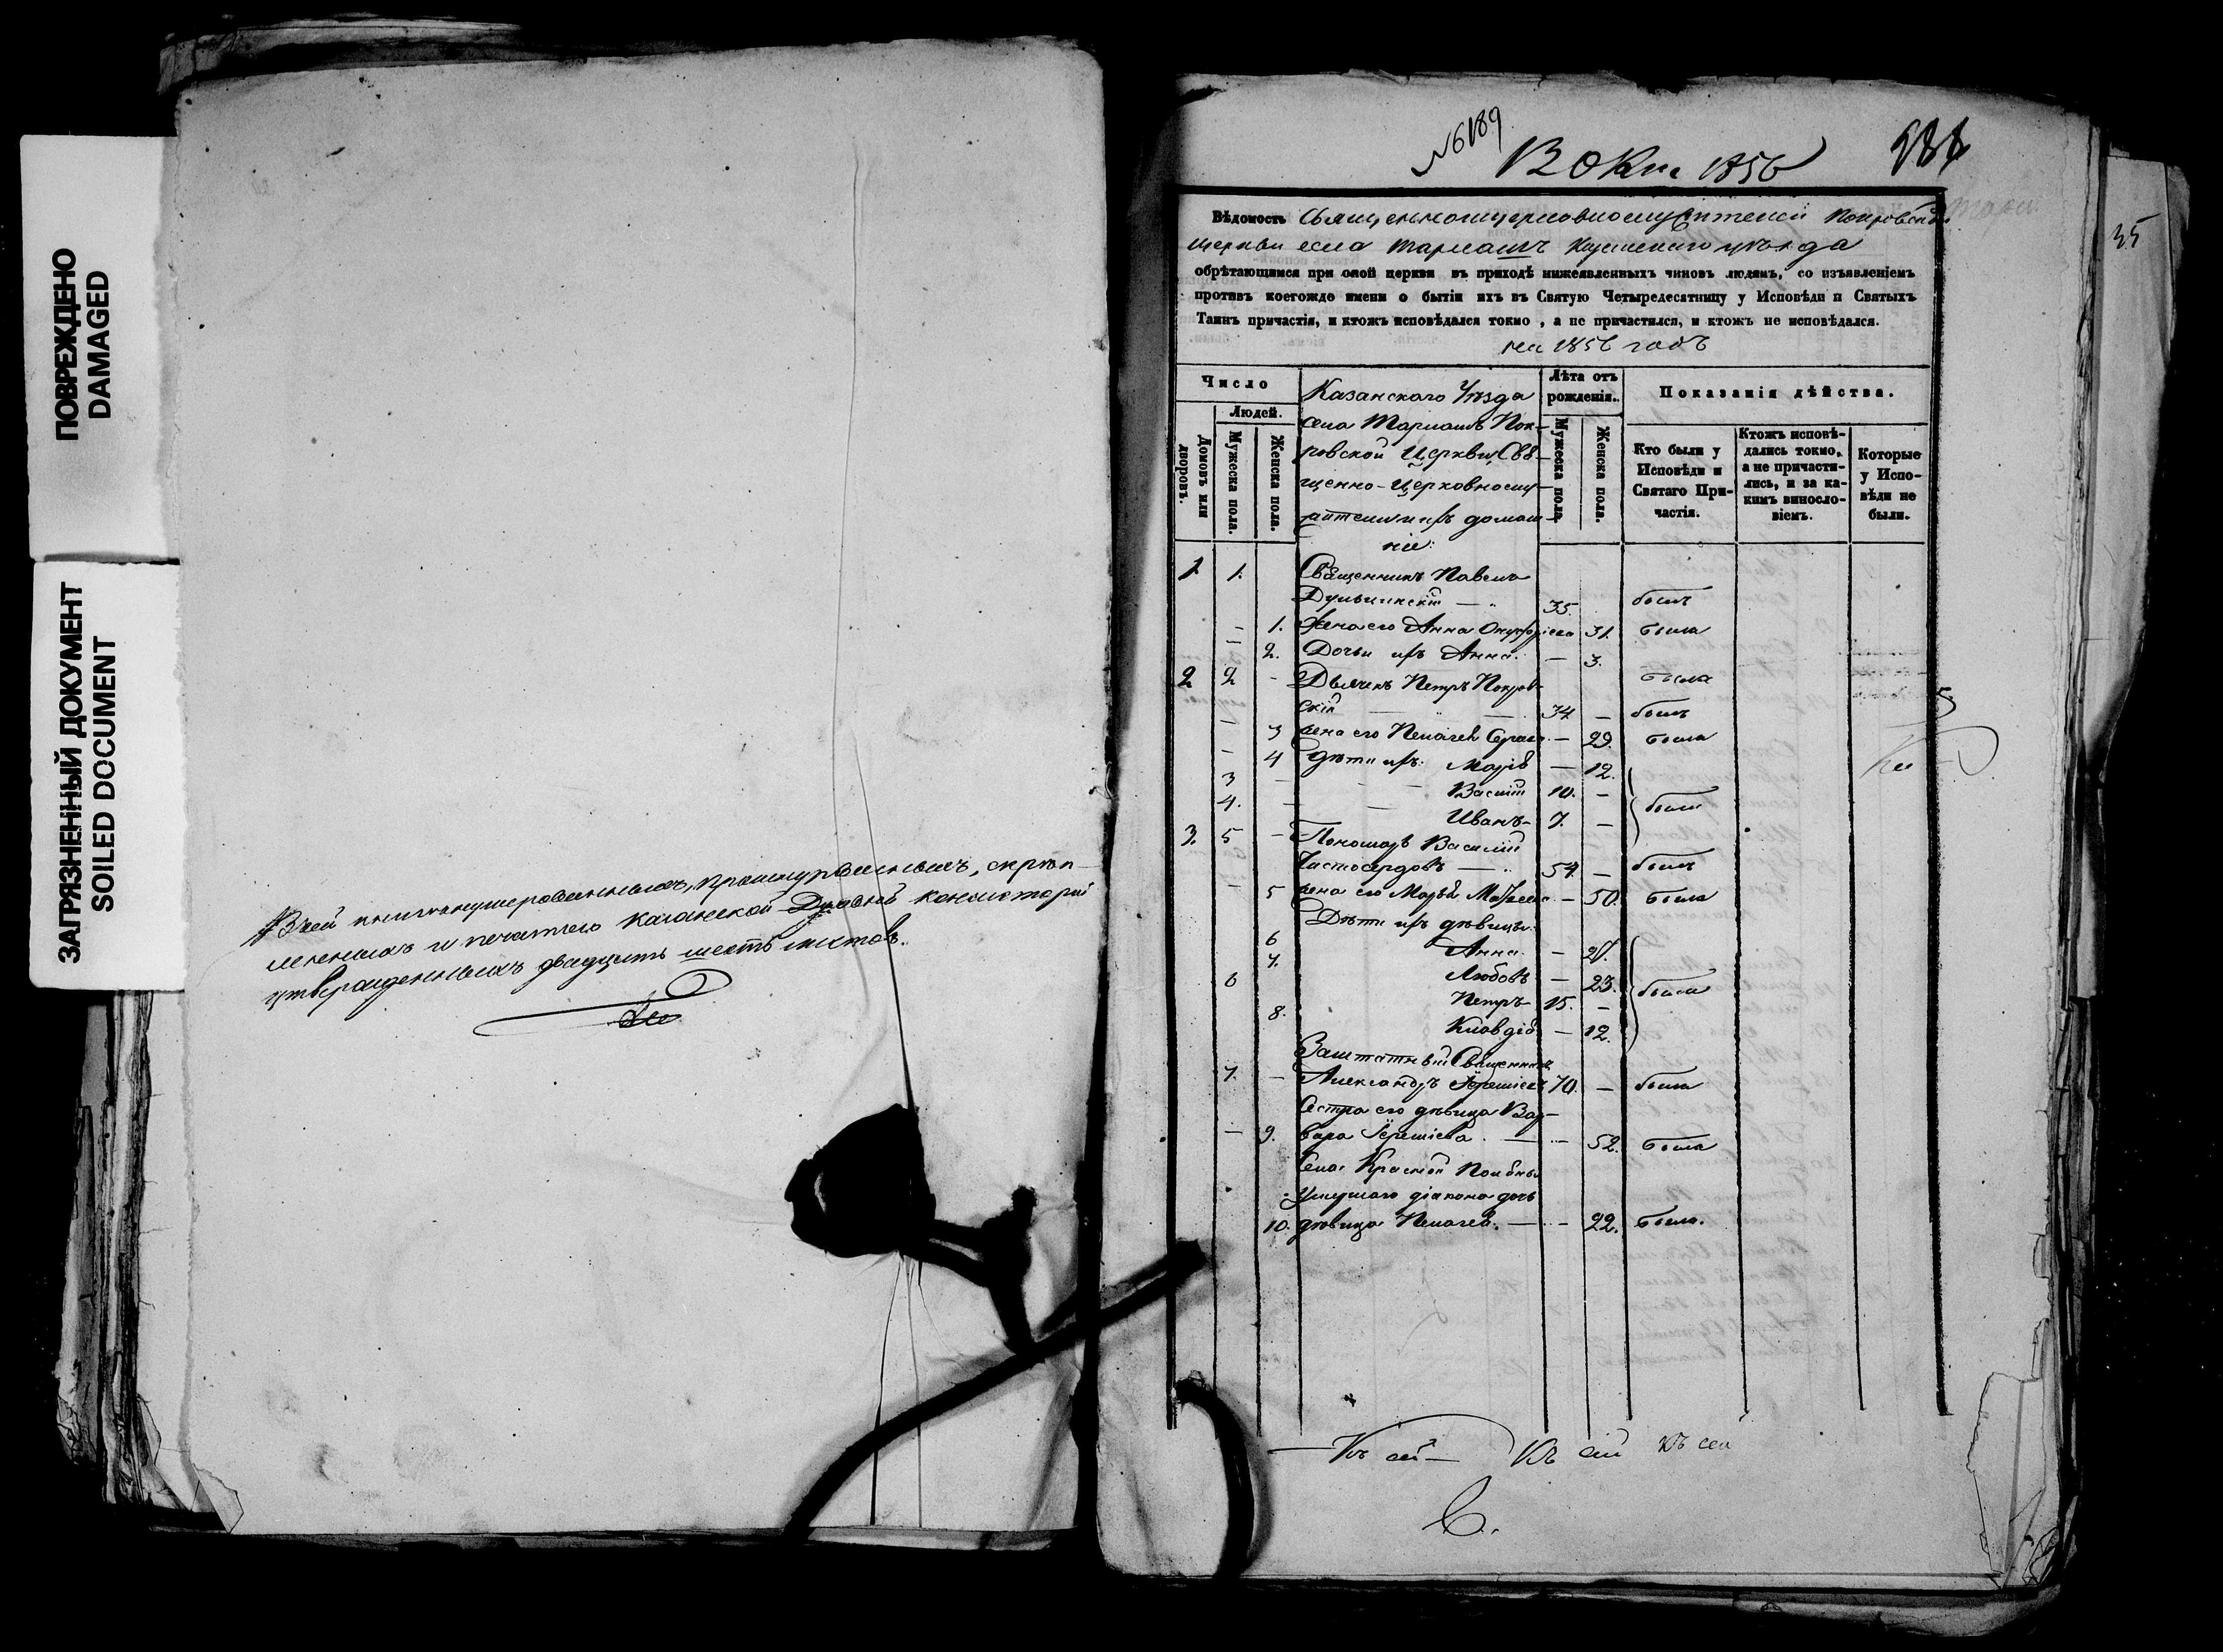 ПОВРЕЖДЕНО
DAMAGED
ЗАГРЯЗНЕННЫЙ ДОКУМЕНТ
SOILED DOCUMENT
В сей книге нумерованныхъ, прошнурованныхъ, скрѣп-
ленныхъ и печатью Казанской Духовной Консисторіи
утвержденныхъ двадцать шесть листовъ.
№6189
12 Окт 1856
35
Вѣдомость Священноцерковнослужителей Покровской
церкви села Тарлашъ Казанскаго уѣзда
обрѣтающимся при оной церкви въ приходѣ нижеявленныхъ чиновъ людямъ, со изъявленіемъ
противъ коегождо имени о бытіи ихъ въ Святую Четыредесятницу у Исповѣди и Святыхъ
Таинъ причастія, и ктожъ исповѣдался токмо, а не причастился, и ктожъ не исповѣдался.
на 1856 годъ
Число
Людей.
Домовъ или дворовъ.
Мужеска пола.
Женска пола.
Казанскаго Уѣзда
села Тарлашъ Пок-
ровской Церкви Свя-
щенно-Церковнослу-
жители и ихъ домаш-
ніе:
Лѣта отъ
рожденія.
Мужеска пола.
Женска пола.
Показанія дѣйства.
Кто были у
Исповѣди и
Святаго При-
частія.
Ктожъ исповѣ-
дались токмо,
а не причасти-
лись, и за ка-
кимъ виносло-
віемъ.
Которые
у Испо-
вѣди не
были.
1. 1. Священникъ Павелъ
35. былъ
— 1. Жена его Анна 31. была
— 2. Дочь ихъ Анна. — 3.
была
2 2 - Дьячекъ Петръ Покров-
скій — 34 — былъ
— 3 жена его Пелагея — 29. была
— 4 Дѣти ихъ: Марія — 12.
3 — Василій 10. —
4. — Иванъ- 7. — были
3. 5 — Пономарь Василій
Чистосердовъ — 54. — былъ
— 5 жена его Марья — 50. была
Дѣти ихъ дѣвицы:
6 Анна —
7. Любовь — 23. были
6 Петръ 15. —
8. Клавдія — 12.
Заштатный Священникъ
7. — Александръ 70. — былъ
Сестра его дѣвица Вар-
— 9. вара — 52. была
Села Красной Поляны
Умершаго діакона дочь
10. дѣвица Пелагея. — — 22. была.
Къ сей — Къ сей Къ сей
С.